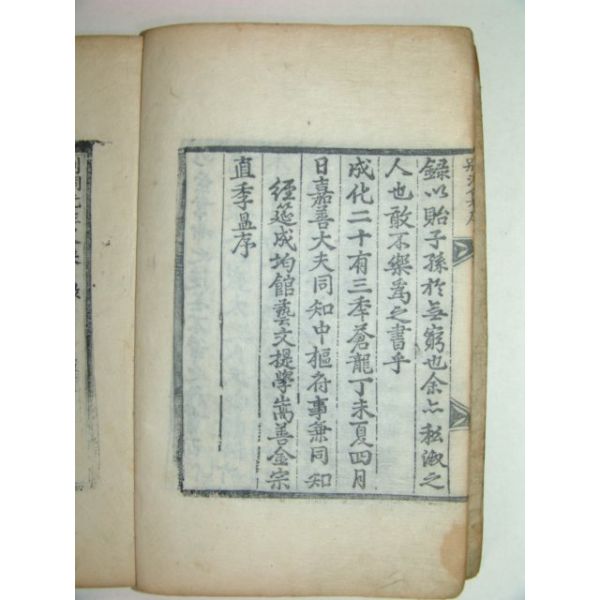 錄以貽子孫於無窮也余亦私淑之
人也敢不樂爲之書乎
成化二十有三年蒼龍丁未夏四月
日嘉善大夫同知中樞府事兼同知
經筵成均館藝文提學嵩善金宗
直季昷序